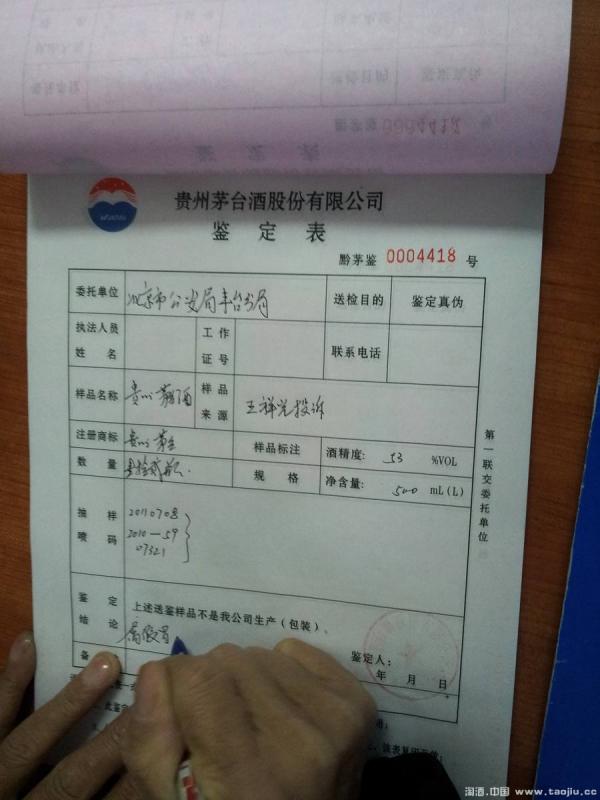 黔茅鉴 0004418 号
贵州茅台酒股份有限公司
鉴定表
黔茅鉴 0004418 号
委托单位 北京市公安局丰台分局 送检目的 鉴定真伪
执法人员姓名 工作证号 联系电话
样品名称 贵州茅台酒 样品来源 王祥光投诉
注册商标 贵州茅台 样品标注 酒精度: 53 %VOL
数量 规格 净含量: 500 mL(L)
抽样喷码 20110708
2010-59
07321
鉴定结论 上述送鉴样品不是我公司生产(包装)、
属假冒
鉴定人:
年 月 日
备
第一联交委托单位
淘酒.中国 www.taojiu.cc